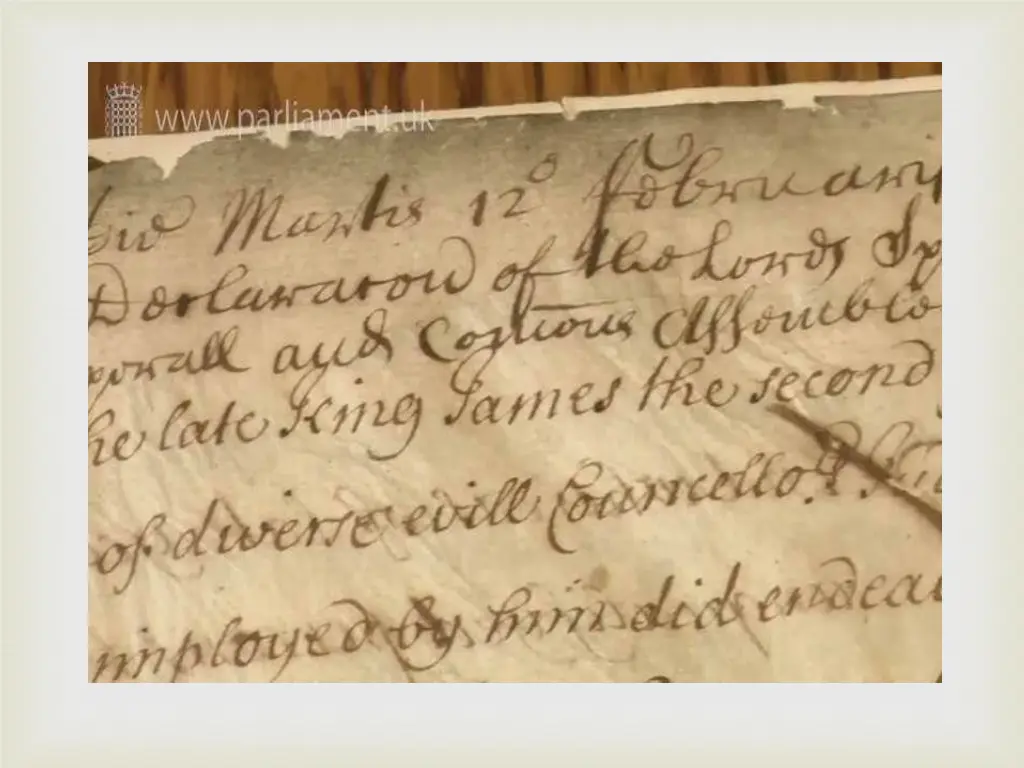 www.parliament.uk
Die Martis 12º February
Declaracon of the Lords Sp
porall and Com̄ons Assemble
he late King James the second
of diverse evill Councello.rs
imployed by him did endeav